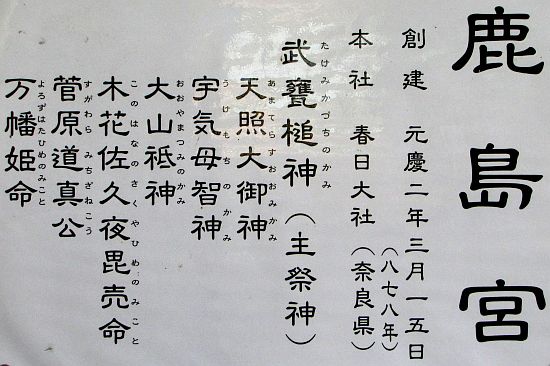 鹿島宮
創建 元慶二年三月一五日
(八七八年)
本社 春日大社(奈良県)
たけみかづちのかみ
武甕槌神(主祭神)
あまてらすおおみかみ
天照大御神
うけもちのかみ
宇気母智神
おおやまつみのかみ
大山祇神
このはなのさくやひめのみこと
木花佐久夜毘売命
すがわらみちざねこう
菅原道真公
よろずはたひめのみこと
万幡姫命